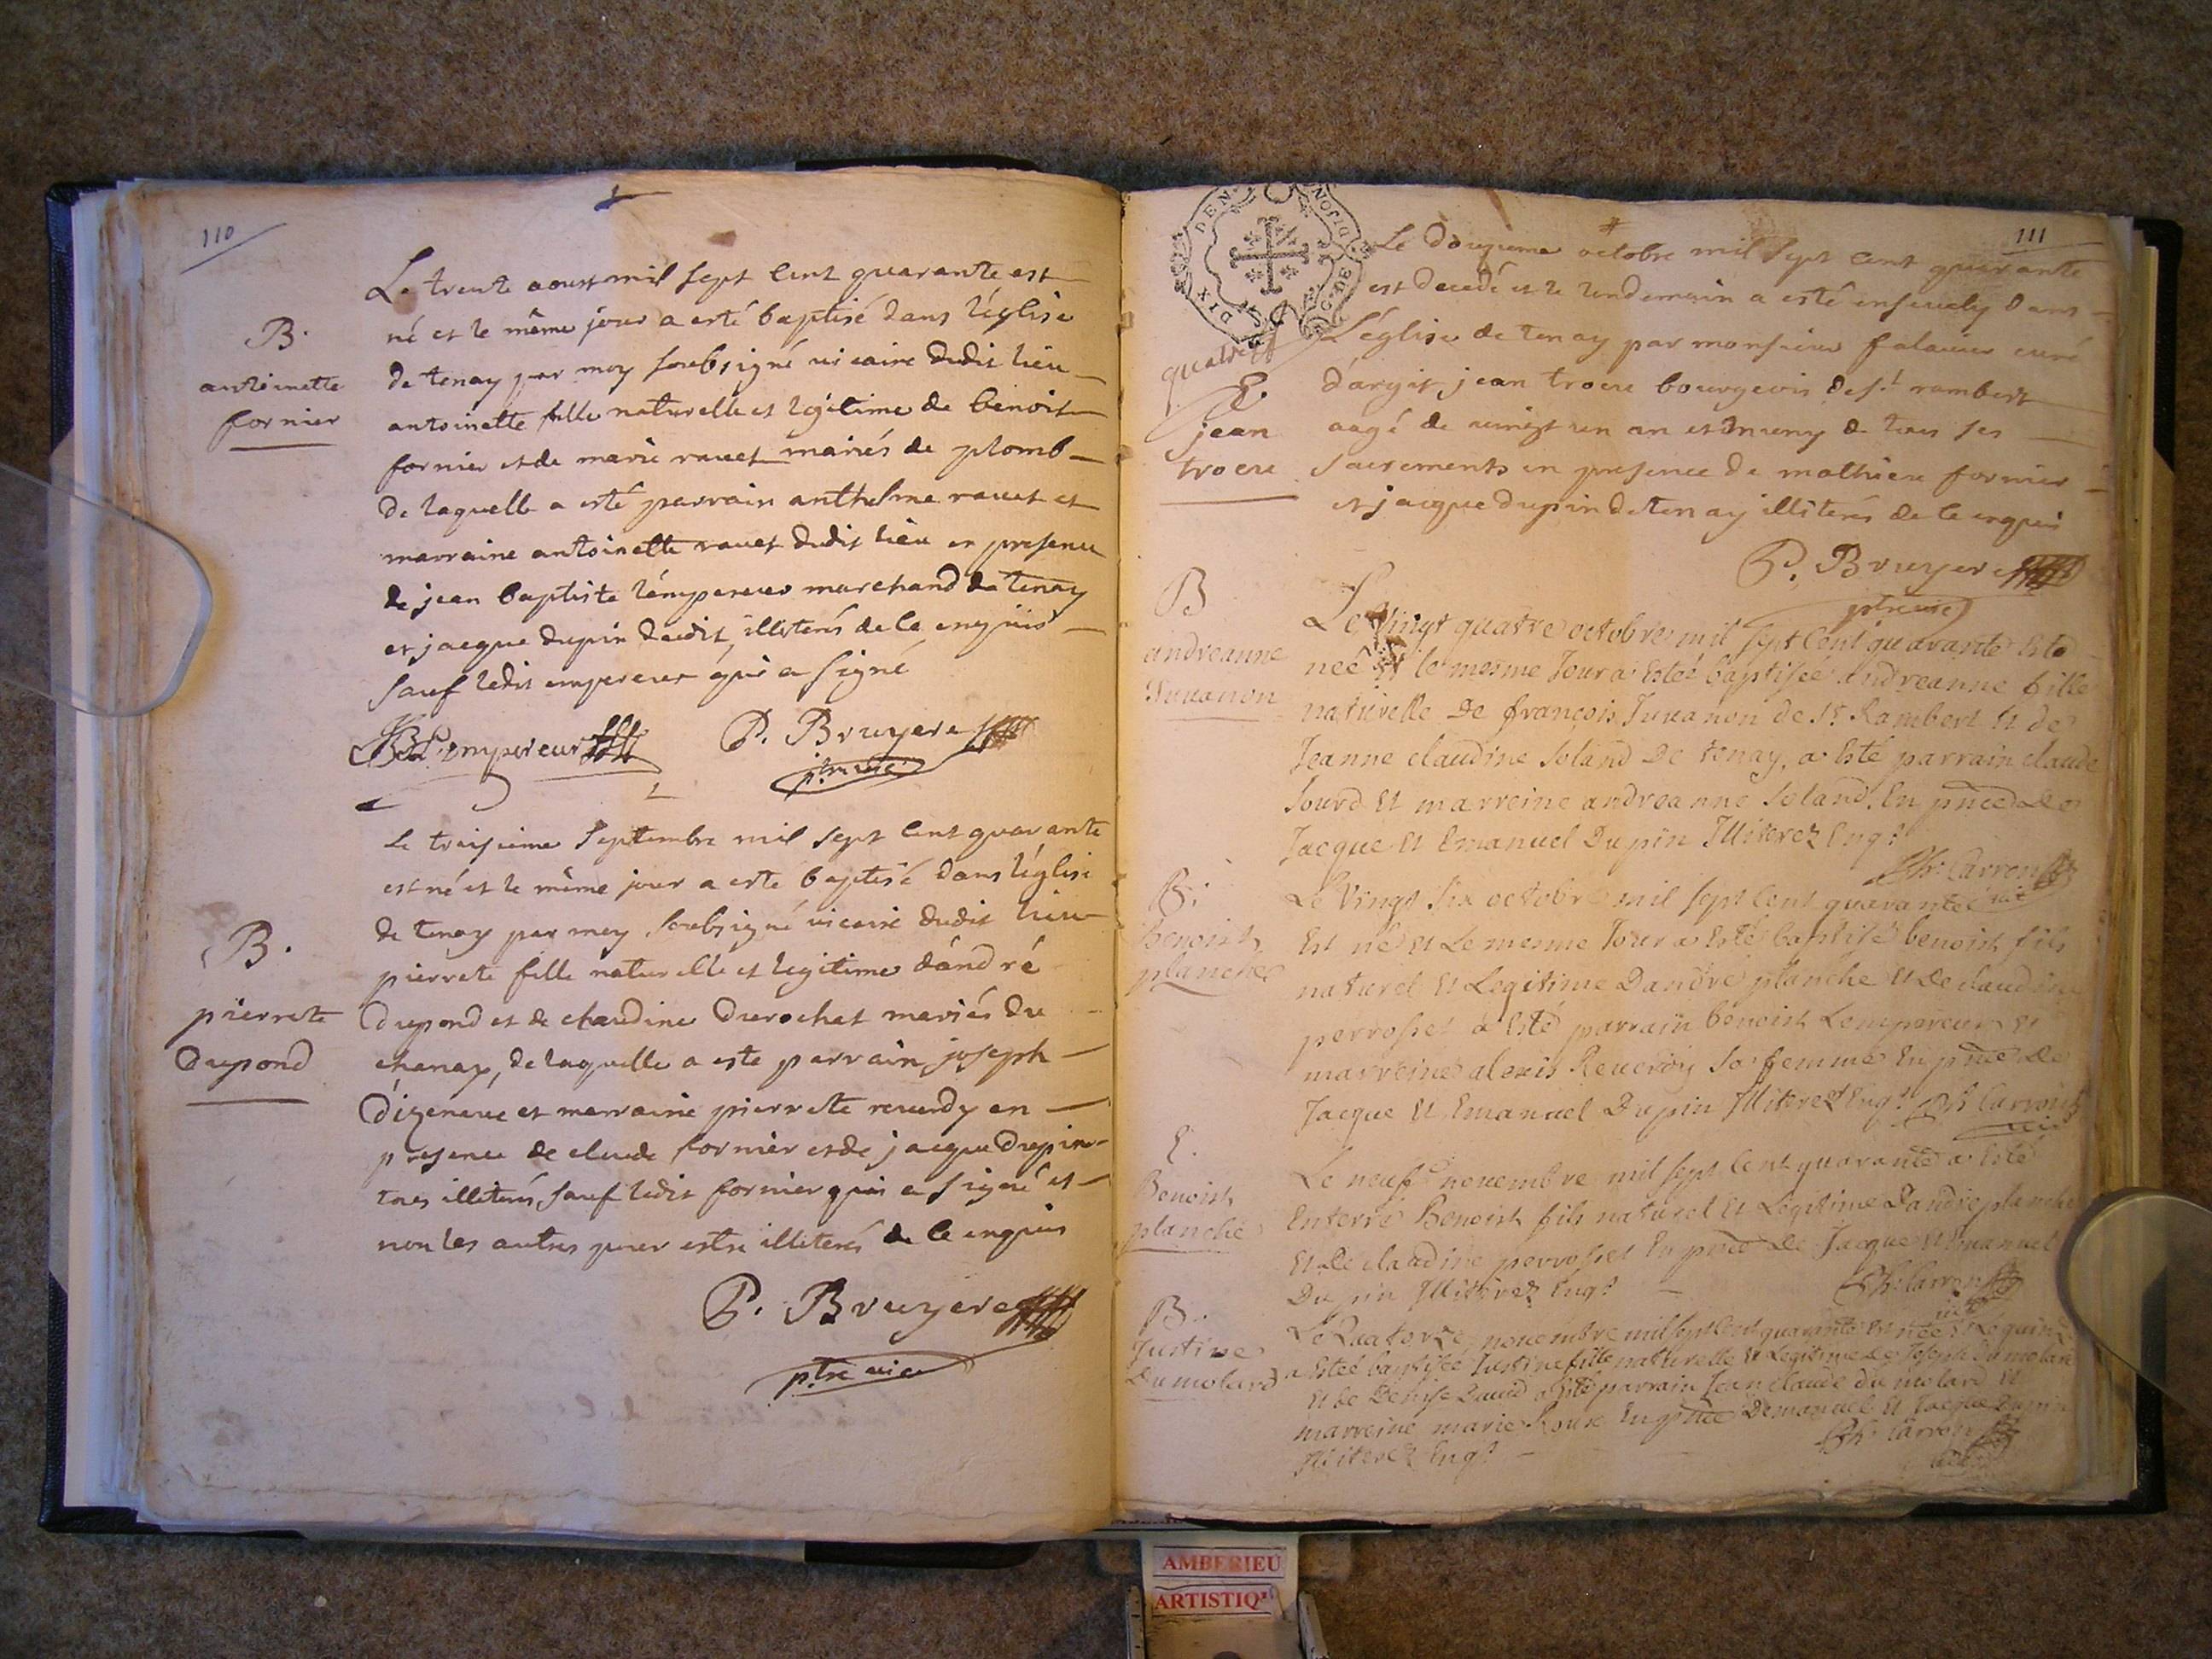 110
B.
antoinette
fornier
Le trente aoust mil sept cent quarante est
né et le même jour a esté baptisé dans léglise
de tenay par moy soubsigné vicaire dudit lieu
antoinette fille naturelle et legitime de benoist
fornier et de marie ravet mariés de plomb
de laquelle a esté parrain anthelme ravet et
marraine antoinette ravet dudit lieu en presence
de jean baptiste lémpereur marchand de tenay
et jacque dupin dudit, illiterés de ce enquis
sauf ledit empereur qui a signé
JB Lempereur P. Bruyere
ptre vic
B.
pierrete
Dupond
Le troisieme septembre mil sept cent quarante
est né et le même jour a esté baptisé dans léglise
de tenay par moy soubsigné vicaire dudit lieu
pierrete fille naturelle et legitime dándré
dupond et de claudine Durochat mariés du
chanay, de laquelle a este parrain joseph
dizeneuve et marraine pierrete reverdy en
presence de claude fornier et de jacque Dupin
tous illiterés, sauf ledit fornier qui a signé et
non les autres pour estre illiterés de ce enquis
P. Bruyere
ptre vic
111
DIX DEN G. DE DIJON
quatre
E.
jean
trocu
Le douzieme octobre mil sept cent quarante
est decedé et le lendemain a esté ensevely dans
Léglise de tenay par monsieur curé
dargis, jean bourgeois de st rambert
aagé de vingt un an et muny de tous ses
sacrements en presence de mathieu fornier
et jacque dupin de tenay illiterés de ce enquis
P. Bruyere
ptre vic
B
andreanne
Juvanon
Le Vingt quatre octobre mil sept cent quarante Este
neé et le mesme Jour a Esteé baptiseé andreanne fille
naturelle De françois Juvanon de St Rambert Et de
Jeanne claudine Soland De tenay, a Esté parrain claude
Sourd Et marreine andreanne Soland. En pnce De
Jacque Et Emanuel Dupin Illiterez Enqs
Ch. Carron
vic
B.
benoist
planche
Le Vingt Six octobre mil sept cent quarante
Est né Et Le mesme Jour a Esté baptisé benoist fils
naturel Et Legitime Dandré planche Et De claudine
perrosset a Esté parrain benoist Lempereur Et
marreine alexis Reveroy Sa femme En pnce De
Jacque Et Emanuel Dupin Illiterez Enqs Ch. Carron
vic
E.
Benoist
planche
Le neuf novembre mil sept cent quarante a Esté
Enterré Benoist fils naturel Et Legitime Dandré planche
Et De claudine perrosset En pnce De Jacque Et Emanuel
Dupin Illiterez Enqs
Ch. Carron
vic
B.
Justine
Dumolard
Le Quatorze novembre mil sept cent quarante Est neé Et Le quinze
a Esteé baptiseé Justine fille naturelle Et Legitime de Joseph Dumolard
Et De Denise David a Esté parrain Jean claude dumolard Et
marreine marie Roux En pnce Demanuel Et Jacque Dupin
Illiterez Enqs
Ch. Carron
vic
AMBERIEU
ARTISTIQ